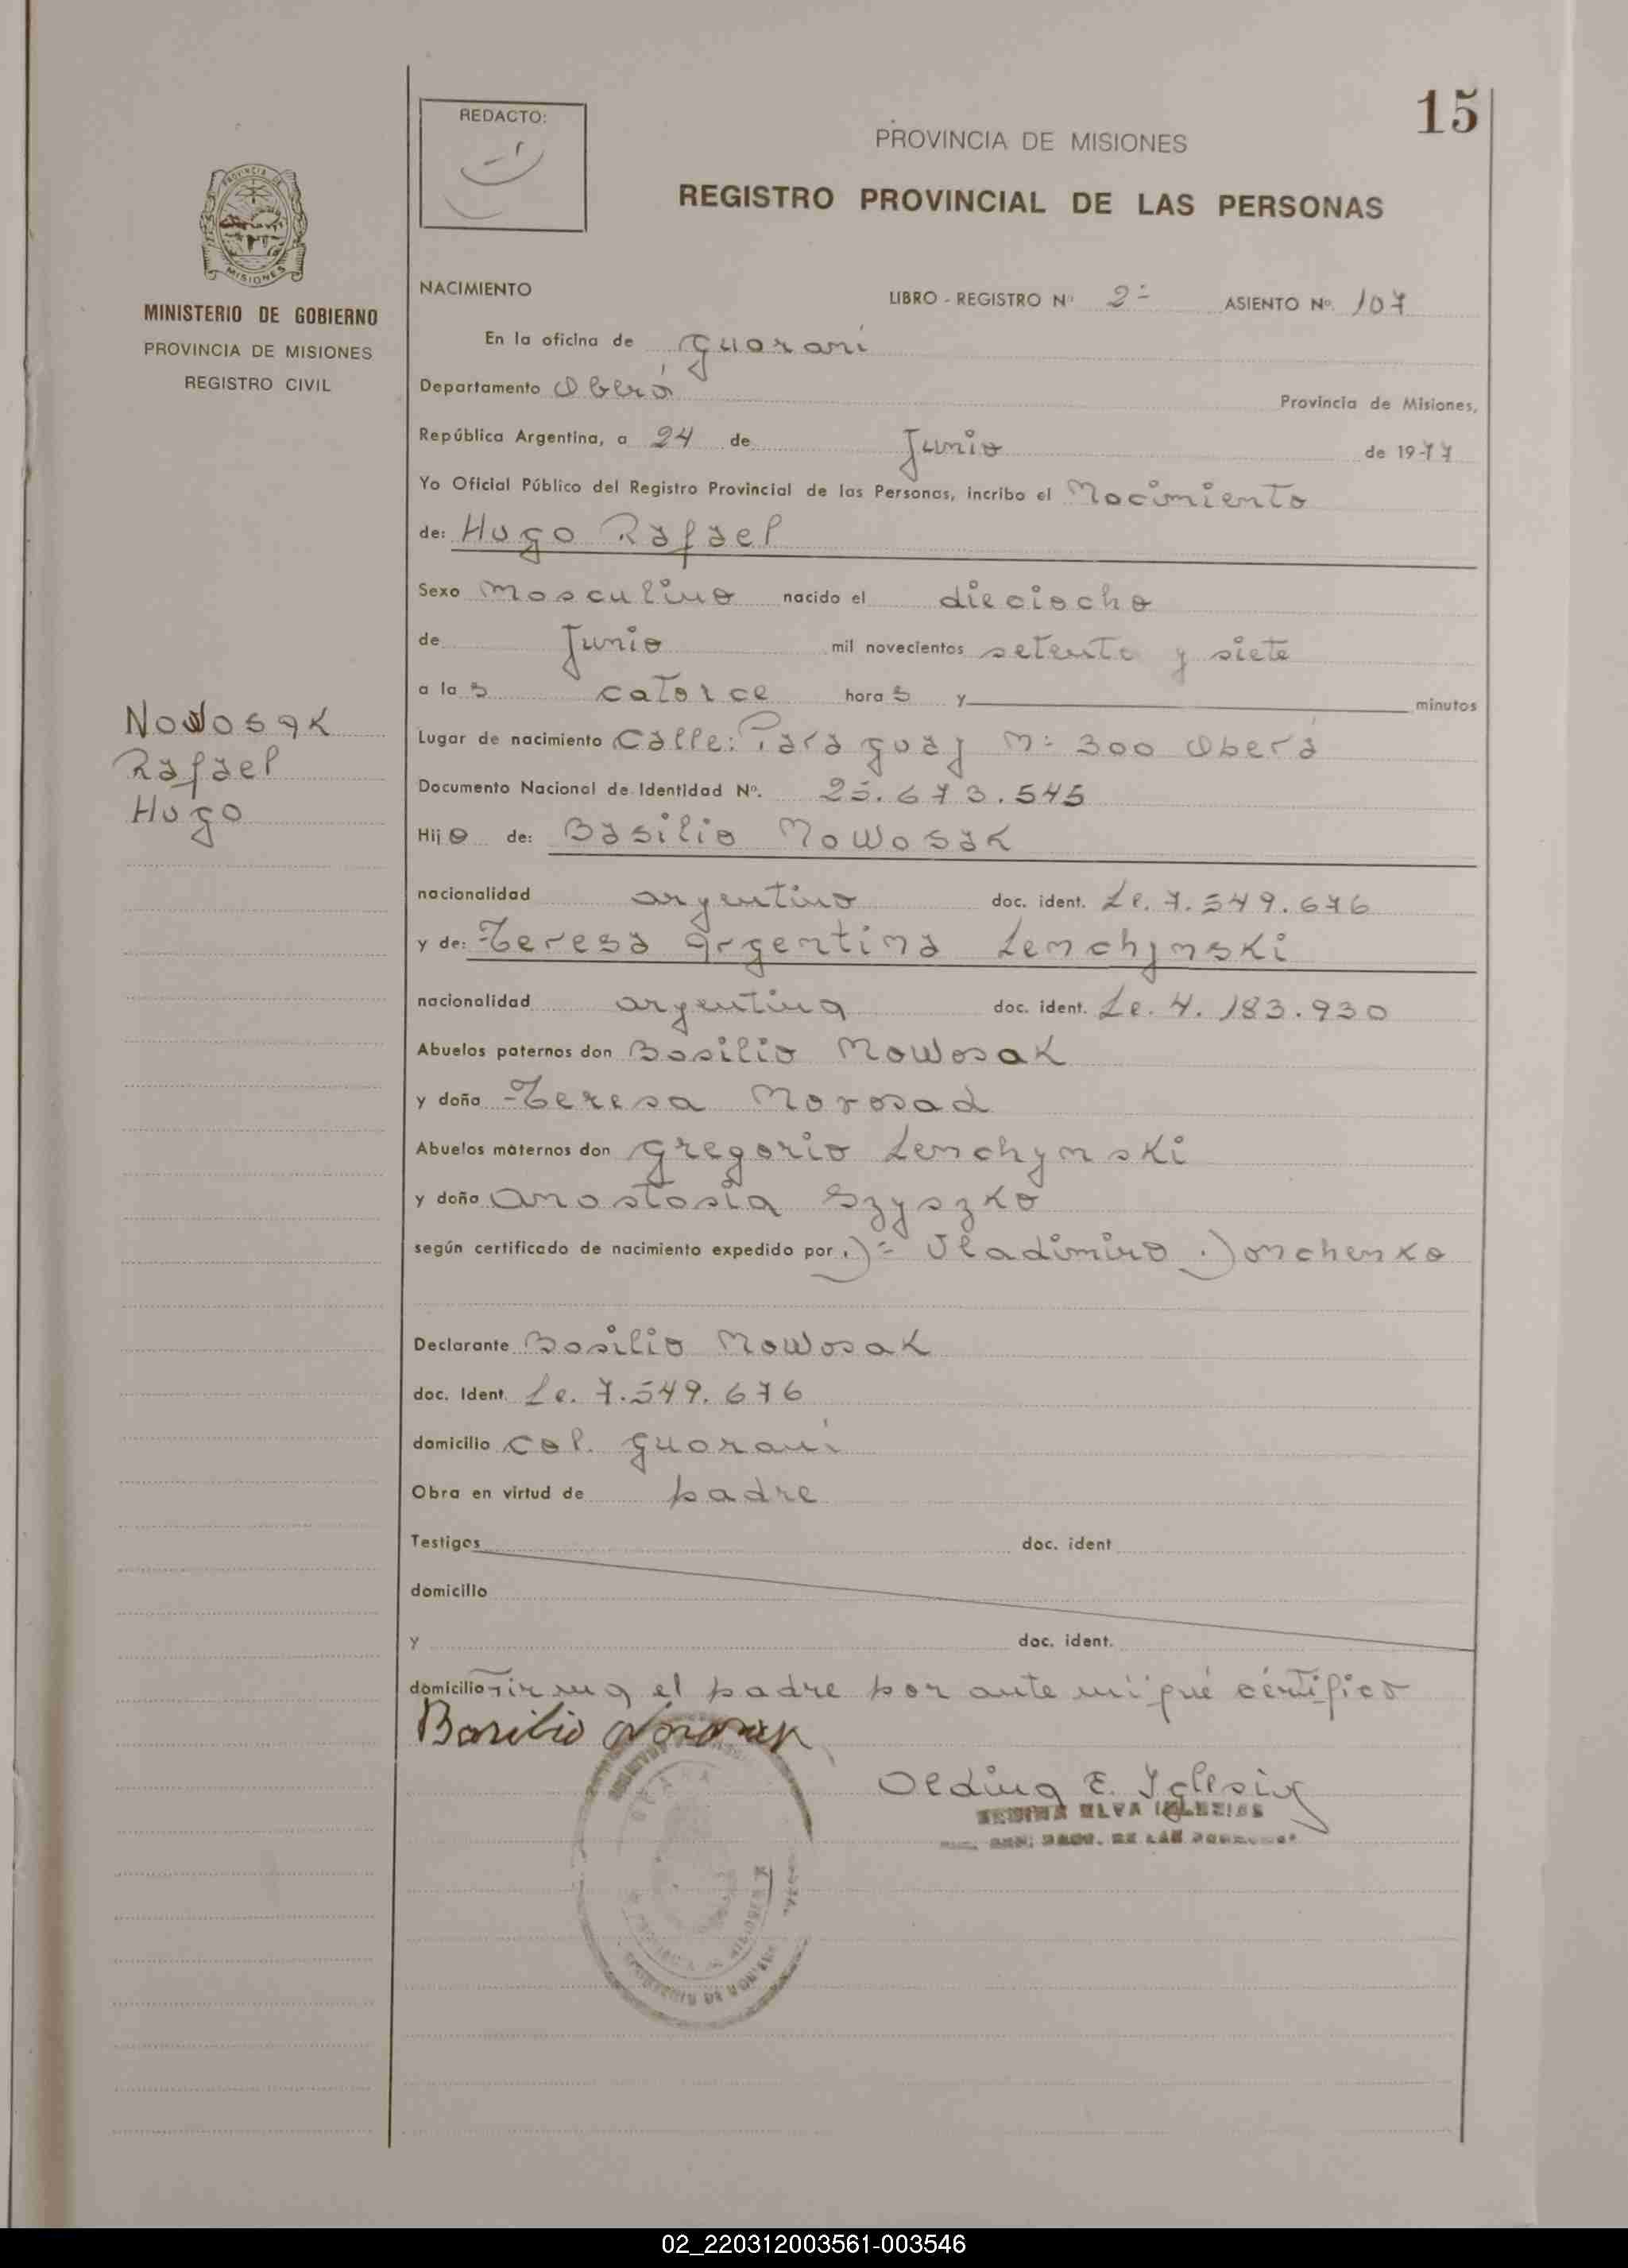 15
REDACTO:
PROVINCIA DE MISIONES
REGISTRO PROVINCIAL DE LAS PERSONAS
PROVINCIA DE
MISIONES
MINISTERIO DE GOBIERNO
PROVINCIA DE MISIONES
REGISTRO CIVIL
NACIMIENTO LIBRO - REGISTRO Nº 2º ASIENTO Nº. 107
En la oficina de Guaraní
Departamento Oberá Provincia de Misiones,
República Argentina, a 24 de Junio de 1977
Yo Oficial Público del Registro Provincial de las Personas, incribo el Nacimiento
de: Hugo Rafael
Sexo Masculino nacido el dieciocho
de Junio mil novecientos setenta y siete
a las catorce horas y minutos
Nowosak
Rafael
Hugo
Lugar de nacimiento Calle: Paraguay Nº 300 Oberá
Documento Nacional de Identidad Nº. 25.673.545
Hijo de: Basilio Nowosak
nacionalidad argentino doc. ident. Le. 7.549.676
y de: Teresa Argentina Lenchynski
nacionalidad argentina doc. ident. Le. 4.183.930
Abuelos paternos don Basilio Nowosak
y doña Teresa Morosad
Abuelos maternos don Gregorio Lenchynski
y doña Anastasia Szyszko
según certificado de nacimiento expedido por Dº Vladimiro Donchenko
Declarante Basilio Nowosak
doc. Ident. Le. 7.549.676
domicilio Col. Guaraní
Obra en virtud de padre
Testigos doc. ident
domicilio
y doc. ident.
domicilio Firma el padre por ante mi que certifico
Basilio Nowosak
Oldina E. Iglesias
ELVA IGLESIAS
02_220312003561-003546